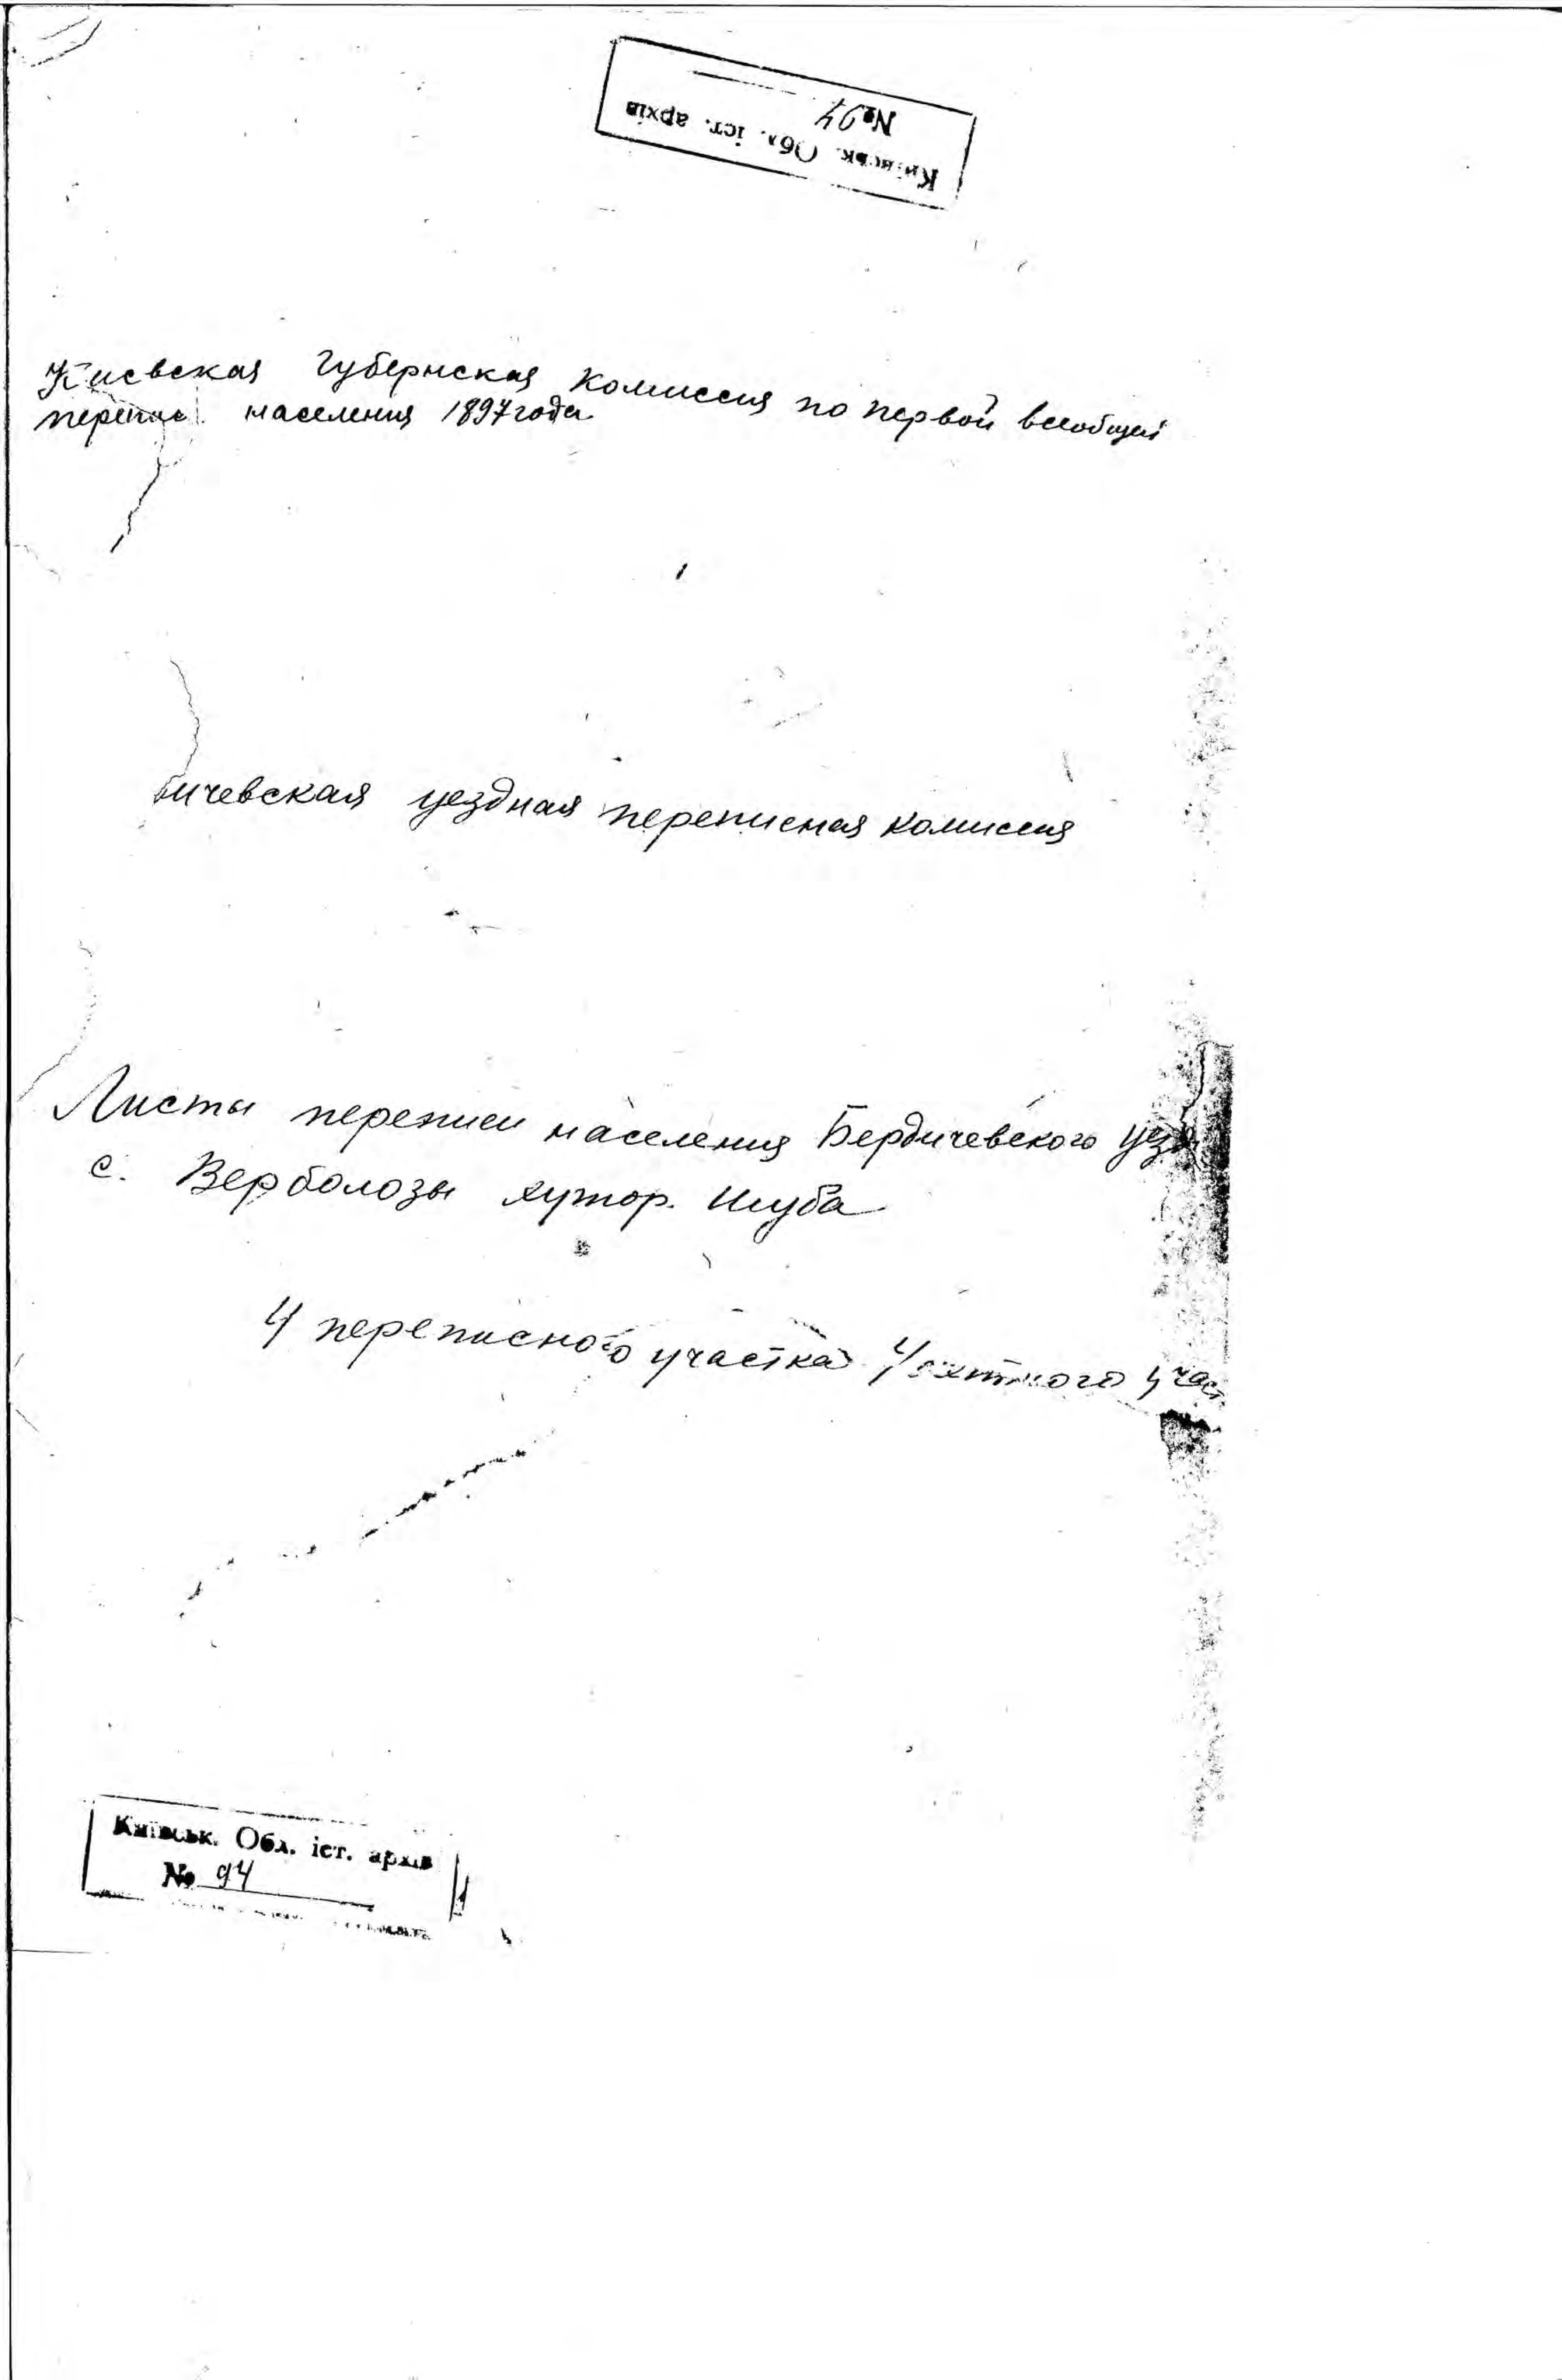 Київськ. Обл. іст. архів
№ 94
Киевская Губернская Комиссия по первой всеобщей
перепис населения 1897 года
бичевская уездная переписная комиссия
Листы переписи населения Бердичевского уезд
с. Верболозы хутор. Шуба
4 переписного участка 4 счетного участ
Київськ. Обл. іст. архів
№ 94